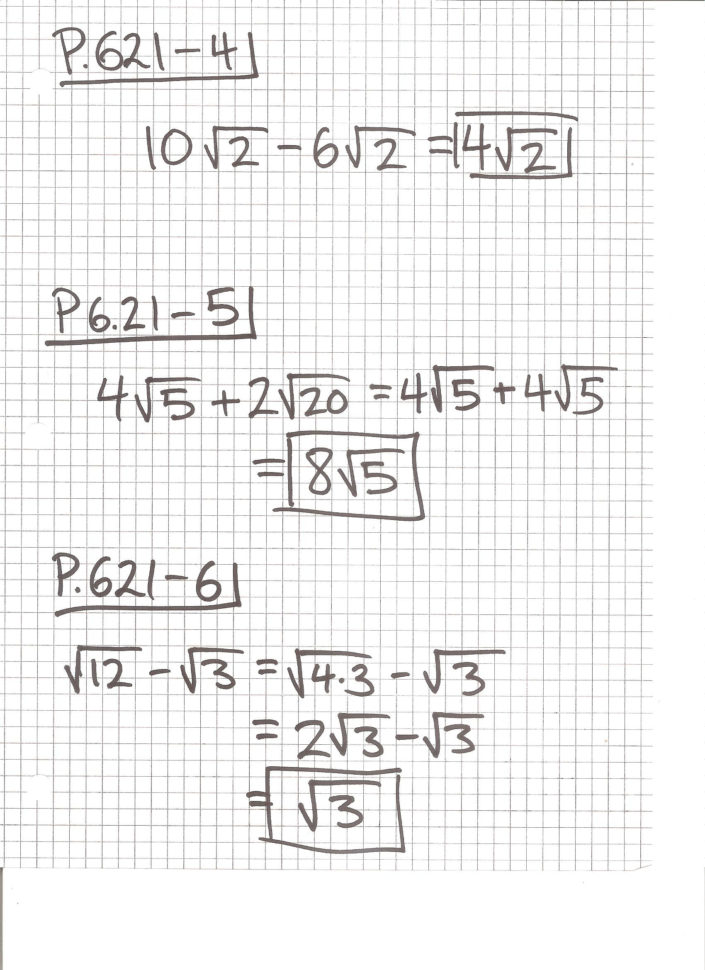 P.621-4
10√2 - 6√2 = 4√2
P6.21-5
4√5 + 2√20 = 4√5 + 4√5
= 8√5
P.621-6
√12 - √3 = √4·3 - √3
= 2√3 - √3
= √3